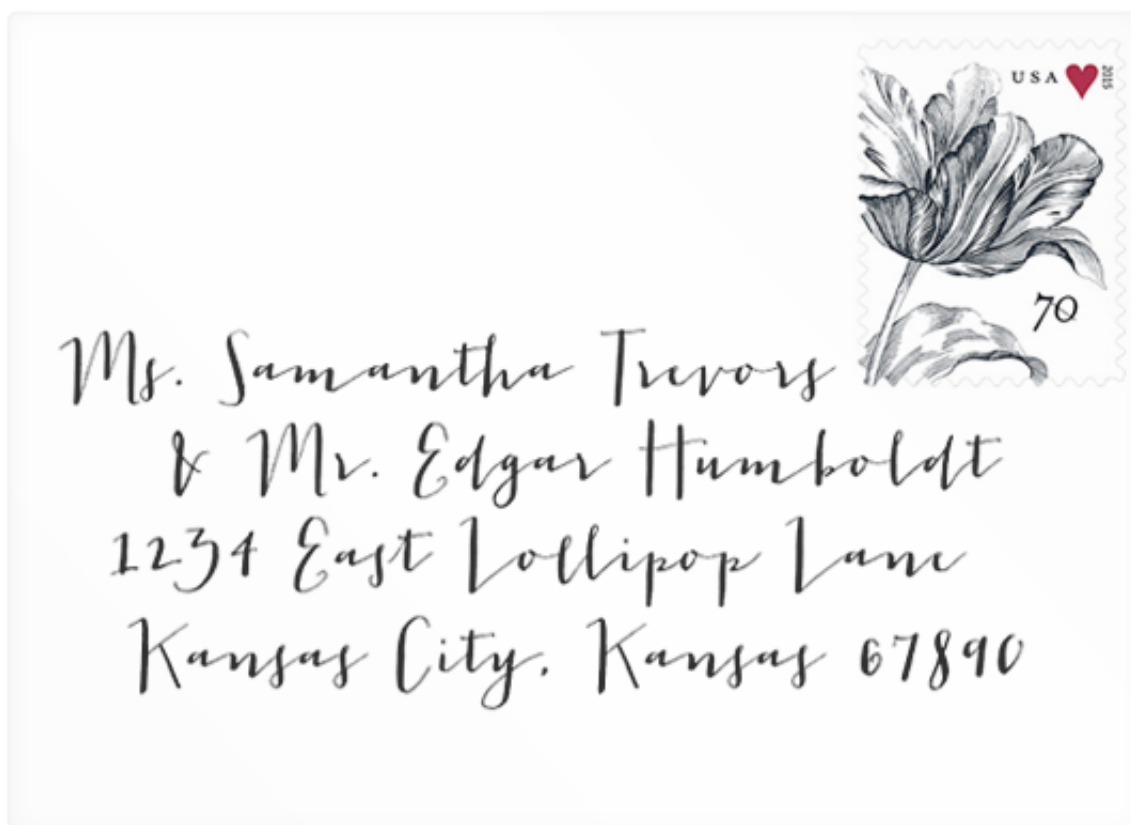 USA 2015
70
Ms. Samantha Trevors
& Mr. Edgar Humboldt
1234 East Lollipop Lane
Kansas City, Kansas 67890